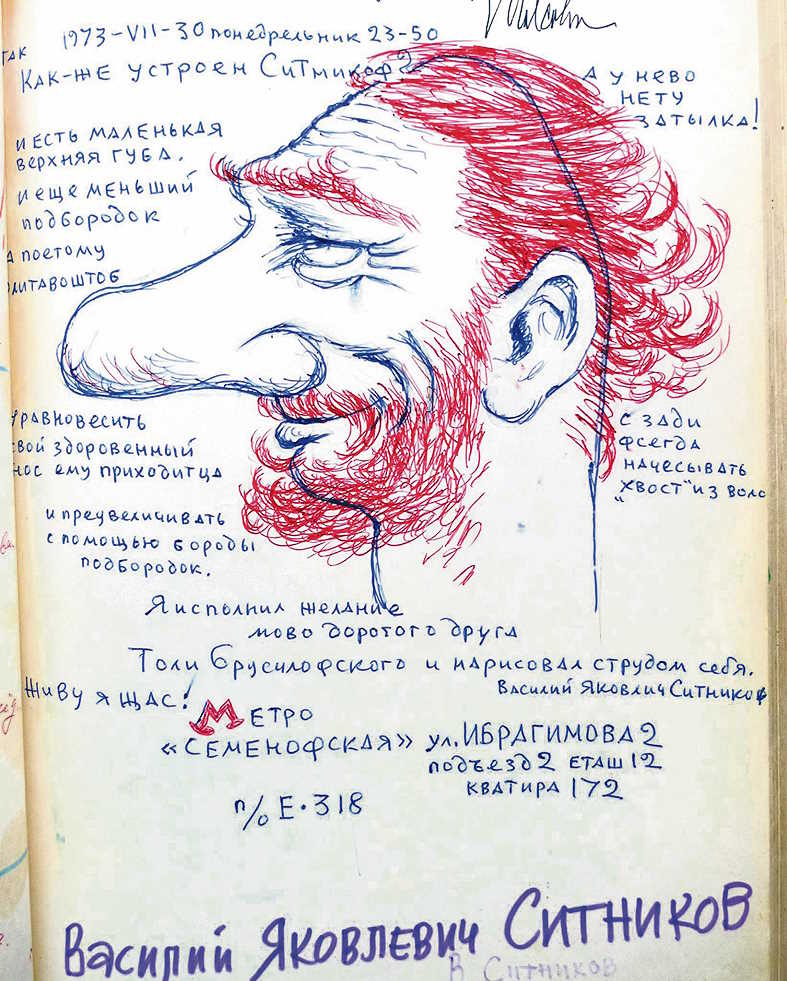 Malcolm
так 1973-VII-30 понедрельник 23-50
Как-же устроен Ситникоф?
А у нево
нету
затылка!
и есть маленькая
верхняя губа.
и еще меньший
подбородок
а поетому
литавоштоб
уравновесить
свой здоровенный
нос ему приходитца
с зади
фсегда
начесывать
„хвост" из воло
и преувеличивать
с помощью бороды
подбородок.
Я исполнил желание
мово доротого друга
Толи Брусилофского и нарисовал струдом себя.
Василий Яковлич Ситникоф
Живу я щас!
Метро
«Семенофская» ул. Ибрагимова 2
подъезд 2 еташ 12
кватира 172
п/о Е-318
Василий Яковлевич Ситников
В Ситников